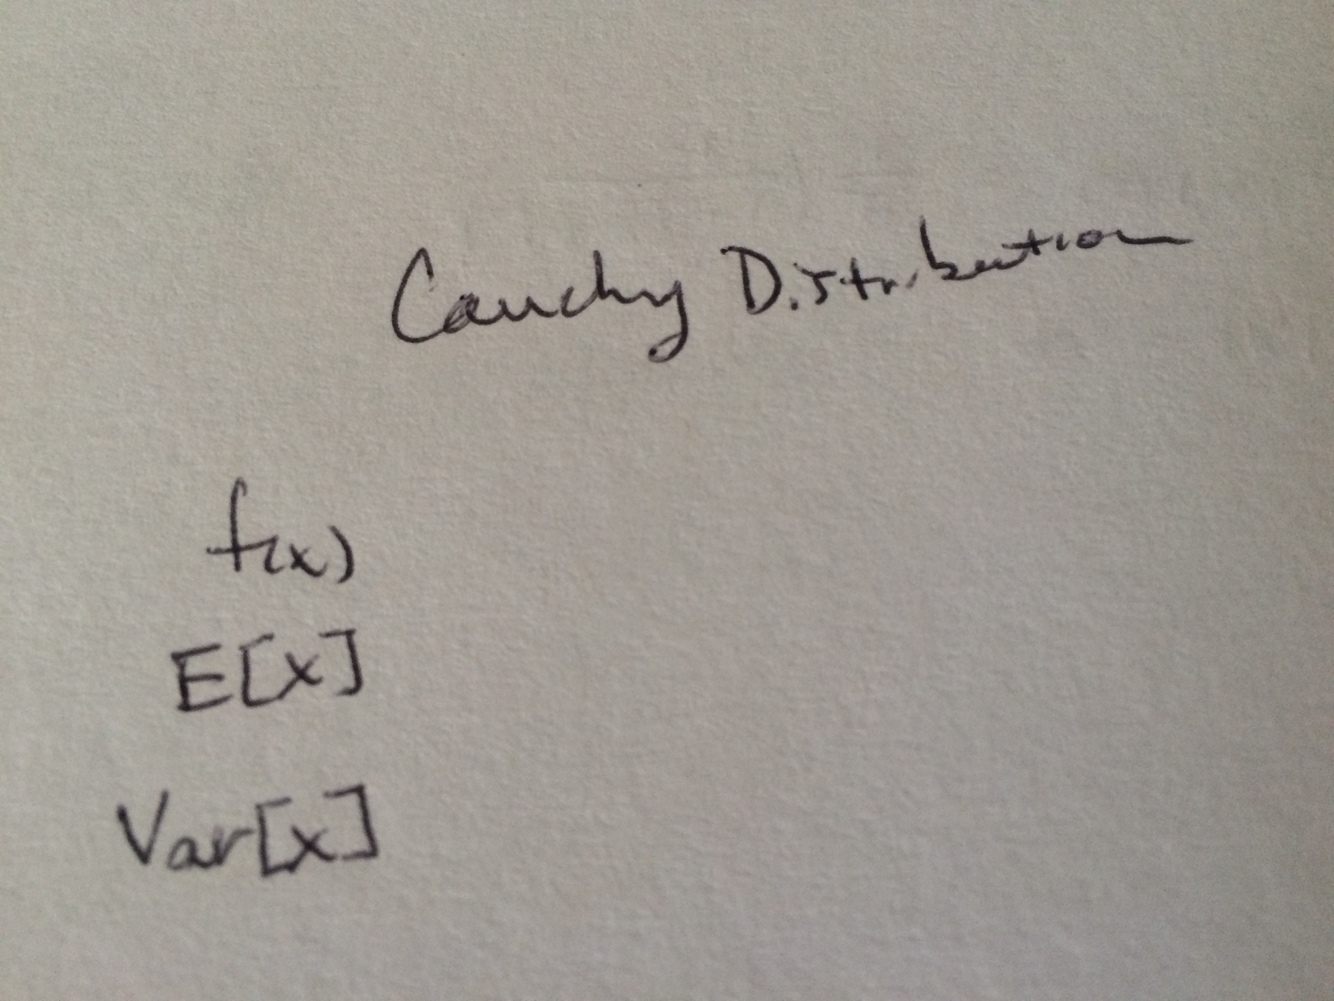 Cauchy Distribution
f(x)
E[x]
Var[x]